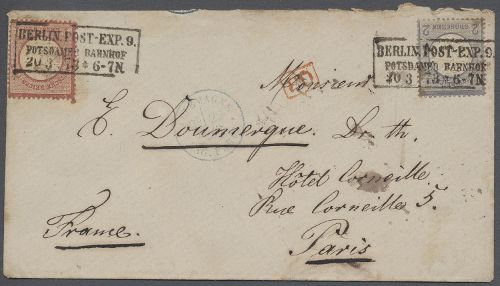 BERLIN, POST-EXP. 9.
POTSDAMER BAHNHOF
20 3 73 6-7N.
BERLIN, POST-EXP. 9.
POTSDAMER BAHNHOF
20 3 73 6-7N.
2
2
PD
Monsieur
E. Doumergue, Dr. th.
Hôtel Corneille
Rue Corneille 5.
France.
Paris